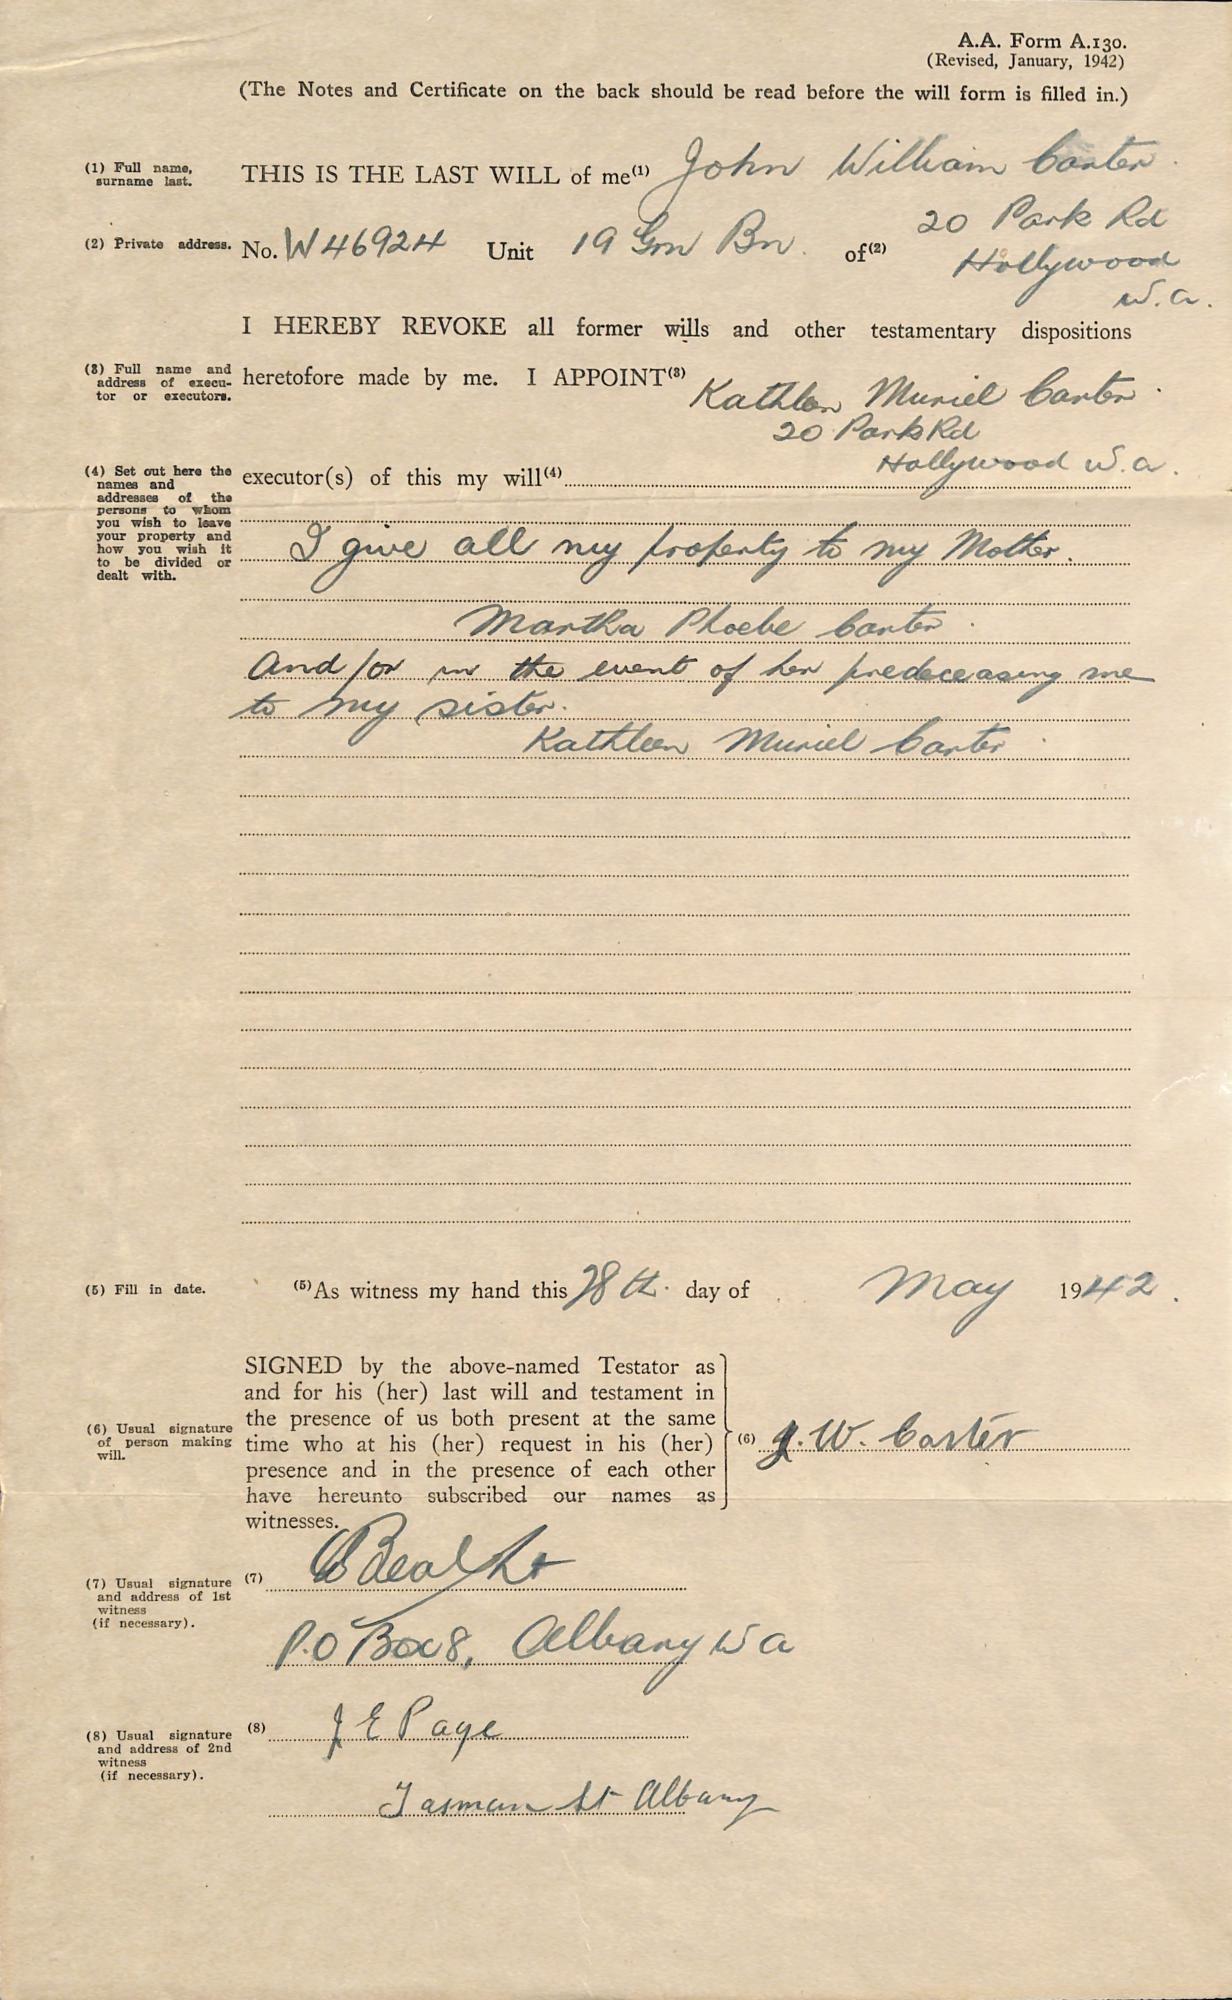 A.A. Form A.130.
(Revised, January, 1942)
(The Notes and Certificate on the back should be read before the will form is filled in.)
(1) Full name, surname last.
THIS IS THE LAST WILL of me(1) John William Carter.
(2) Private address.
No. W46924 Unit 19 Grn Bn. of(2) 20 Park Rd
Hollywood
W.A.
I HEREBY REVOKE all former wills and other testamentary dispositions
(3) Full name and
address of execu-
tor or executors.
heretofore made by me. I APPOINT(3) Kathleen Muriel Carter.
20 Park Rd
Hollywood W.A.
(4) Set out here the
names and
addresses of the
persons to whom
you wish to leave
your property and
how you wish it
to be divided or
dealt with.
executor(s) of this my will(4)
I give all my property to my Mother.
Martha Phoebe Carter.
And/or in the event of her predeceasing me
to my sister.
Kathleen Muriel Carter.
(5) Fill in date.
(5) As witness my hand this 28th. day of May 1942.
SIGNED by the above-named Testator as
and for his (her) last will and testament in
the presence of us both present at the same
time who at his (her) request in his (her)
presence and in the presence of each other
have hereunto subscribed our names as
witnesses.
(6) Usual signature
of person making
will.
(6) J. W. Carter
(7) Usual signature
and address of 1st
witness
(if necessary).
(7) Lt
P.O Box 8, Albany W A
(8) Usual signature
and address of 2nd
witness
(if necessary).
(8) J E Page
Tasman St Albany